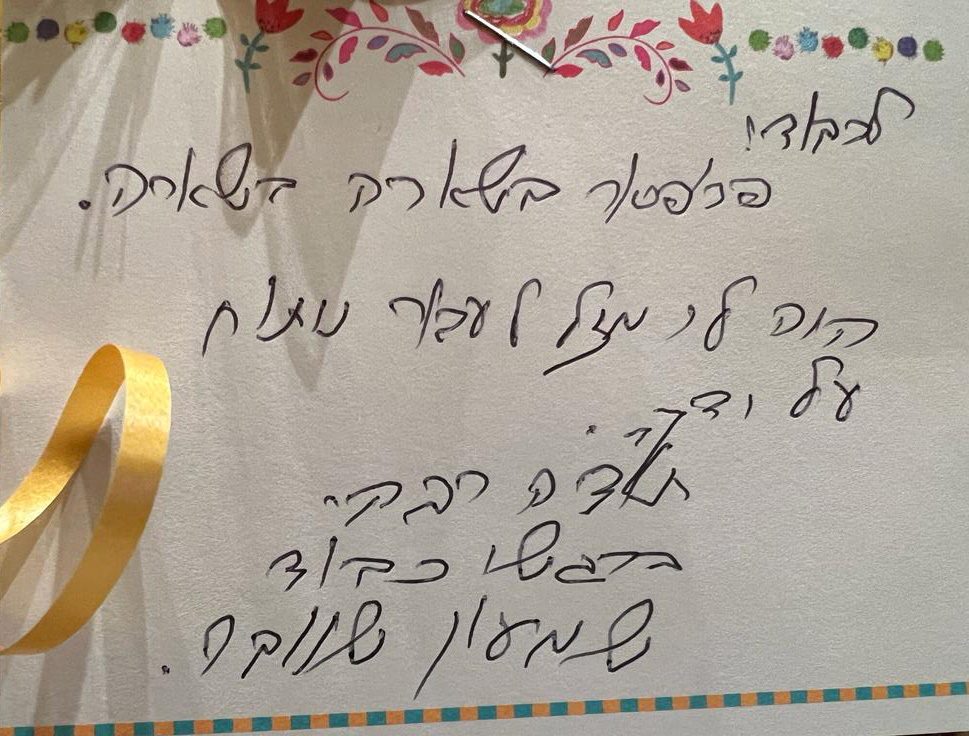 לכבוד:
פרופסור בשארה בשארה.
היה לי מזל לעבור ניתוח
על ידך.
תודה רבה.
ברגשי כבוד
שמעון שוובה.